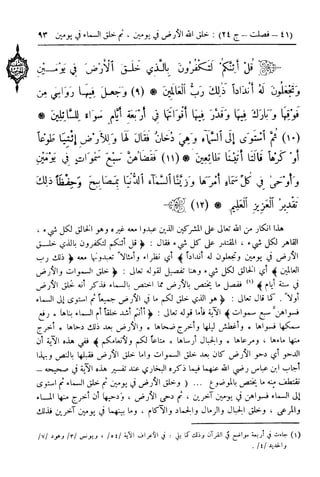 (٤١ – فصلت – ج ٢٤) : خلق الله الأرض في يومين ، ثم خلق السماء في يومين ٩٣
قُلْ أَئِنَّكُمْ لَتَكْفُرُونَ بِالَّذِي خَلَقَ الْأَرْضَ فِي يَوْمَيْنِ
وَتَجْعَلُونَ لَهُ أَندَادًا ذَٰلِكَ رَبُّ الْعَالَمِينَ * (٩) وَجَعَلَ فِيهَا رَوَاسِيَ مِن
فَوْقِهَا وَبَارَكَ فِيهَا وَقَدَّرَ فِيهَا أَقْوَاتَهَا فِي أَرْبَعَةِ أَيَّامٍ سَوَاءً لِّلسَّائِلِينَ *
(١٠) ثُمَّ اسْتَوَىٰ إِلَى السَّمَاءِ وَهِيَ دُخَانٌ فَقَالَ لَهَا وَلِلْأَرْضِ ائْتِيَا طَوْعًا
أَوْ كَرْهًا قَالَتَا أَتَيْنَا طَائِعِينَ * (١١) فَقَضَاهُنَّ سَبْعَ سَمَاوَاتٍ فِي يَوْمَيْنِ
وَأَوْحَىٰ فِي كُلِّ سَمَاءٍ أَمْرَهَا وَزَيَّنَّا السَّمَاءَ الدُّنْيَا بِمَصَابِيحَ وَحِفْظًا ذَٰلِكَ
تَقْدِيرُ الْعَزِيزِ الْعَلِيمِ * (١٢)
هذا انكار من الله تعالى على المشركين الذين عبدوا معه غيره وهو الخالق لكل شيء ،
القاهر لكل شيء ، المقتدر على كل شيء فقال : ﴿ قل أئنكم لتكفرون بالذي خلق
الأرض في يومين وتجعلون له أنداداً ﴾ أي نظراء وأمثالاً تعبدونها معه ﴿ ذلك رب
العالمين ﴾ أي الخالق لكل شيء وهنا تفصيل لقوله تعالى : ﴿ خلق السموات والأرض
في ستة أيام ﴾ (١) ففصل ما يختص بالأرض مما اختص بالسماء فذكر أنه خلق الأرض
أولاً . كما قال تعالى : ﴿ هو الذي خلق لكم ما في الأرض جميعاً ثم استوى إلى السماء
فسواهن سبع سموات ﴾ الآية فأما قوله تعالى : ﴿ أأنتم أشد خلقاً أم السماء بناها . رفع
سمكها فسواها . وأغطش ليلها وأخرج ضحاها . والأرض بعد ذلك دحاها . أخرج
منها ماءها . ومرعاها . والجبال أرساها . متاعاً لكم ولأنعامكم ﴾ ففي هذه الآية أن
الدحو أي دحو الأرض كان بعد خلق السموات وأما خلق الأرض فقبلها بالنص وبهذا
أجاب ابن عباس رضي الله عنهما فيما ذكره البخاري عند تفسير هذه الآية في صحيحه –
نقتطف منه ما يختص بالموضوع ... ( وخلق الأرض في يومين ثم خلق السماء ثم استوى
إلى السماء فسواهن في يومين آخرين ، ثم دحى الأرض ، ودحيها أن أخرج منها الماء
والمرعى ، وخلق الجبال والرمال والجماد والآكام ، وما بينهما في يومين آخرين فذلك
(١) جاءت في أربعة مواضع في القرآن وذلك كما يلي : في الأعراف الآية /٥٤ ، ويونس /٣ وهود /٧/
والحديد /٤/ .